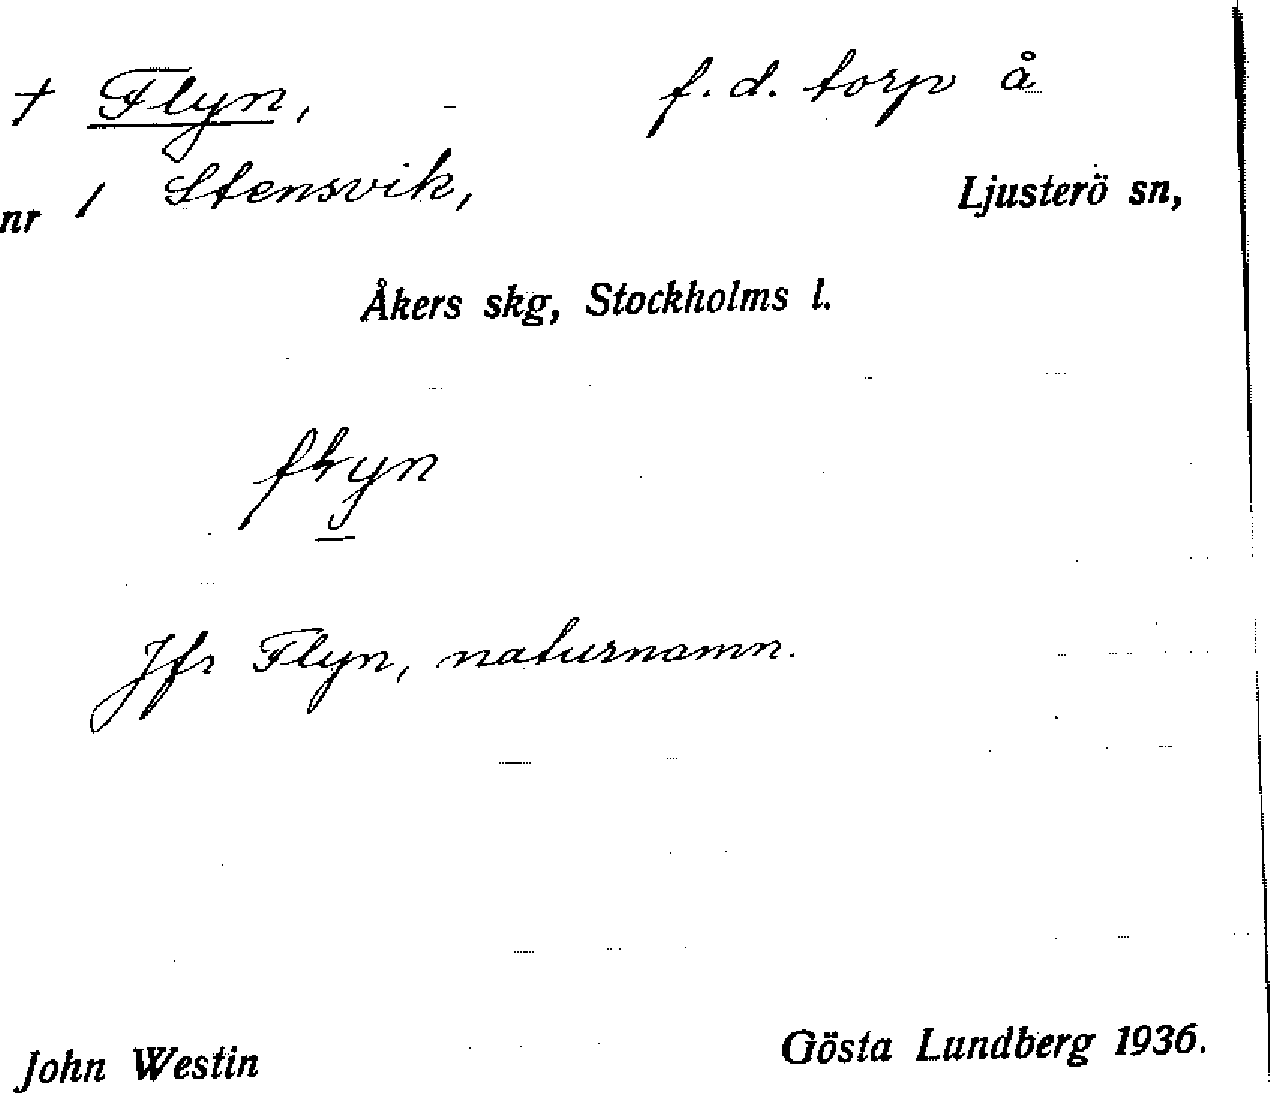 + Flyn, - f. d. torp å
nr 1 Stensvik, Ljusterö sn,
Åkers skg, Stockholms l.
Jfr Flyn, naturnamn.
John Westin Gösta Lundberg 1936.